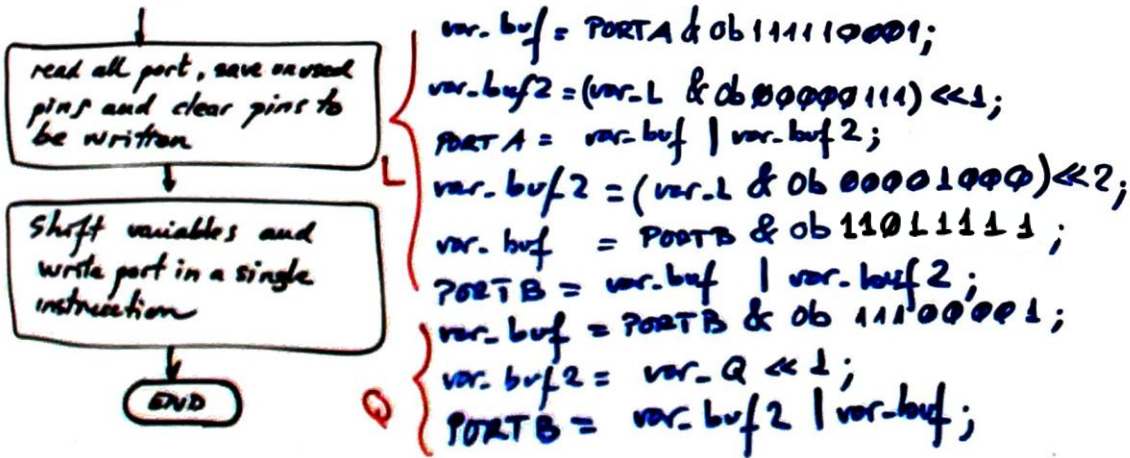 read all port, save unused
pins and clear pins to
be written
Shift variables and
write port in a single
instruction
END
L
var_buf = PORTA & 0b111110001;
var_buf2 = (var_L & 0b00000111) <<1;
PORTA = var_buf | var_buf2;
var_buf2 = (var_L & 0b 00001000) <<2;
var_buf = PORTB & 0b 11011111;
PORTB = var_buf | var_buf2;
Q
var_buf = PORTB & 0b 11100001;
var_buf2 = var_Q << 1;
PORTB = var_buf2 | var_buf;